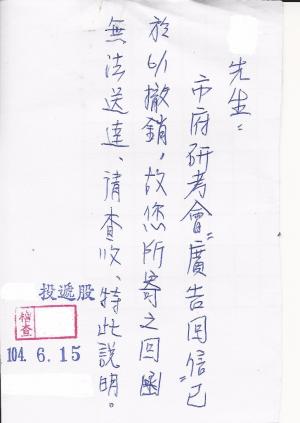 先生：
市府研考會"廣告回信"已
於6/1撤銷，故您所寄之回函
無法送達、請查收、特此說明。
投遞股
稽查
104. 6. 15